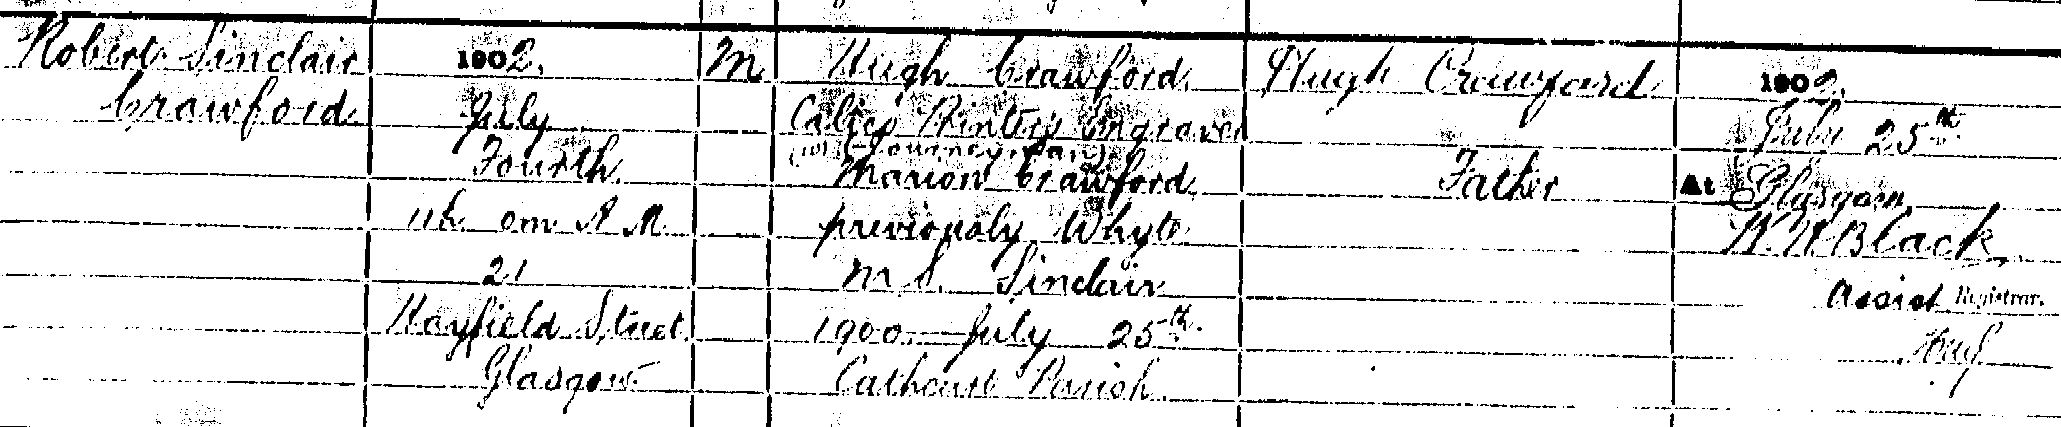 Robert Sinclair
Crawford
1902,
July
Fourth
11h. 0m. A.M.
21
Hayfield Street
Glasgow
M
Hugh Crawford
Calico Printer's Engraver
(Journeyman)
Marion Crawford
previously Whyte
M.S. Sinclair
1900. July 25th.
Cathcart Parish.
Hugh Crawford
Father
1902.
July 25th
At Glasgow
Black
Assist Registrar.